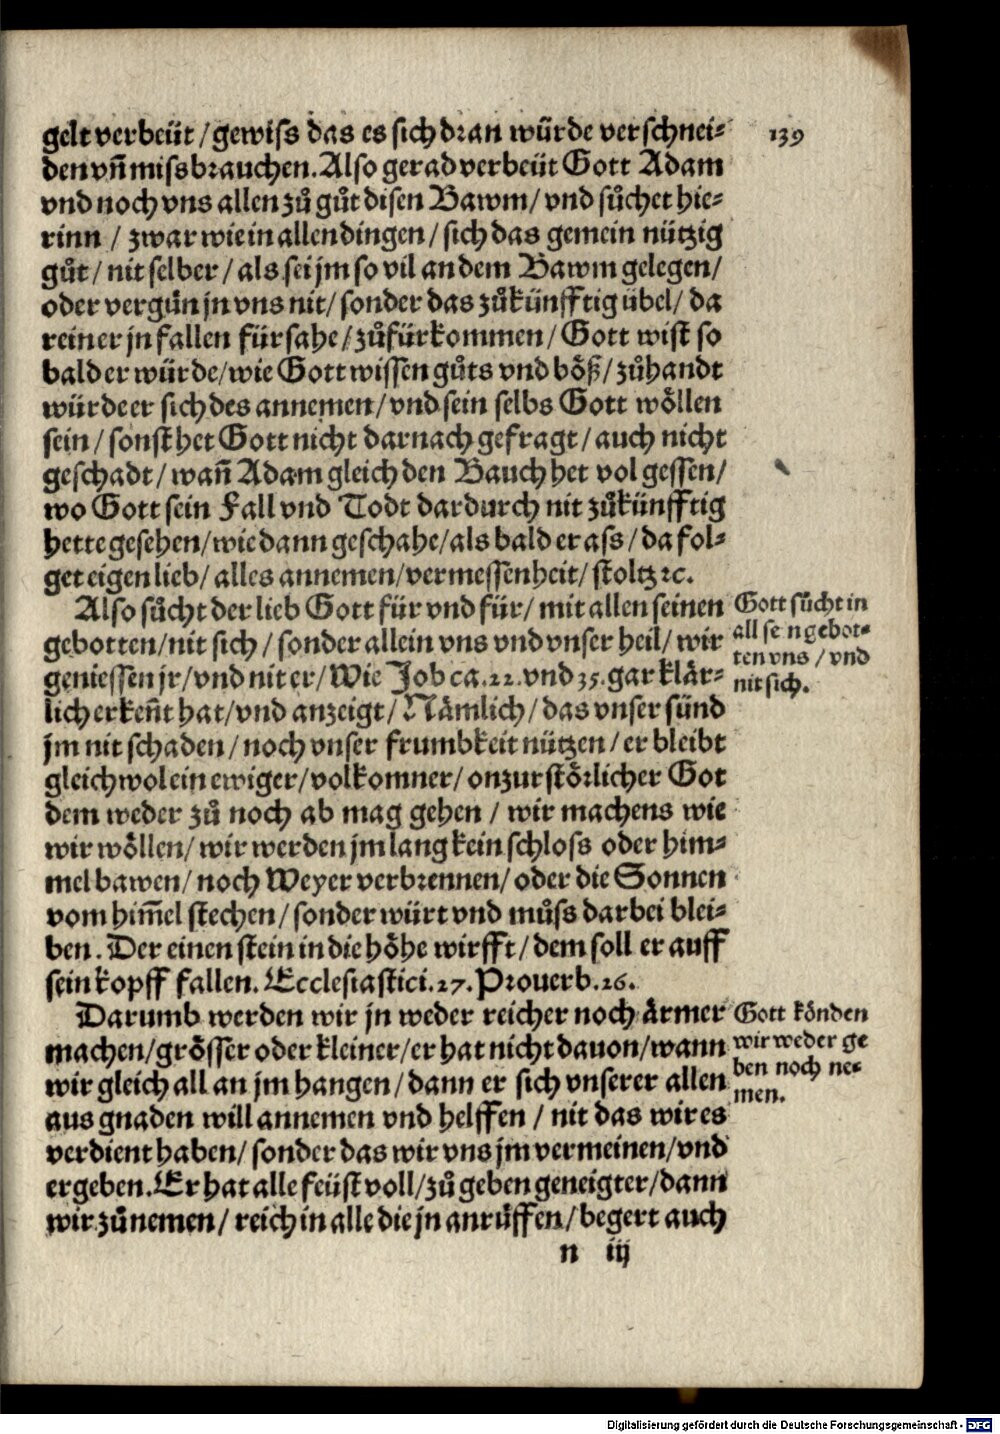 139
gelt verbeüt / gewiſs das es ſich dran würde verſchnei⸗
den vñ miſsbrauchen. Alſo gerad verbeüt Gott Adam
vnd noch vns allen zů gůt diſen Bawm / vnd ſůchet hie⸗
rinn / zwar wie in allen dingen / ſich das gemein nützig
gůt / nit ſelber / als ſei jm ſo vil an dem Bawm gelegen /
oder vergün jn vns nit / ſonder das zůkünfftig übel / da
reiner jn fallen fürſahe / zůfürkommen / Gott wiſt ſo
bald er würde / wie Gott wiſſen gůts vnd böß / zůhandt
würde er ſich des annemen / vnd ſein ſelbs Gott wöllen
ſein / ſonſt het Gott nicht darnach gefragt / auch nicht
geſchadt / wañ Adam gleich den Bauch het vol geſſen /
wo Gott ſein Fall vnd Todt dardurch nit zůkünfftig
hette geſehen / wie dann geſchahe / als bald er aſs / da fol⸗
get eigen lieb / alles annemen / vermeſſenheit / ſtoltz ꝛc.
Alſo ſůcht der lieb Gott für vnd für / mit allen ſeinen
gebotten / nit ſich / ſonder allein vns vnd vnſer heil / wir
genieſſen jr / vnd nit er / Wie Job ca. 22. vnd 35. gar klär⸗
lich erkeñt hat / vnd anzeigt / Nämlich / das vnſer ſünd
jm nit ſchaden / noch vnſer frumbkeit nützen / er bleibt
gleichwol ein ewiger / volkomner / onzurſtörlicher Got
dem weder zů noch ab mag gehen / wir machens wie
wir wöllen / wir werden jm lang kein ſchloſs oder him⸗
mel bawen / noch Weyer verbrennen / oder die Sonnen
vom him̃el ſtechen / ſonder würt vnd můſs darbei blei⸗
ben. Der einen ſtein in die höhe wirfft / dem ſoll er auff
ſein kopff fallen. Eccleſiaſtici. 27. Prouerb. 26.
Darumb werden wir jn weder reicher noch ärmer
machen / gröſſer oder kleiner / er hat nicht dauon / wann
wir gleich all an jm hangen / dann er ſich vnſerer allen
aus gnaden will annemen vnd helffen / nit das wir es
verdient haben / ſonder das wir vns jm vermeinen / vnd
ergeben. Er hat alle feüſt voll / zů geben geneigter / dann
wir zůnemen / reich in alle die jn anrůffen / begert auch
n iij
Gott ſůcht in
all ſe n gebot⸗
ten vns / vnd
nit ſich.
Gott könden
wir weder ge
ben noch ne⸗
men.
Digitalisierung gefördert durch die Deutsche Forschungsgemeinschaft - DFG